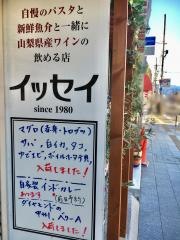 自慢のパスタと
新鮮魚介と一緒に
山梨県産ワインの
飲める店
イッセイ
since 1980
マグロ(赤身・トロブツ)
サバ、白イカ、タコ、
ボイルホタテ貝、
入荷しました!
自家製 インドカレー
あります
ダイヤモンドの
ベリーA
入荷しました!